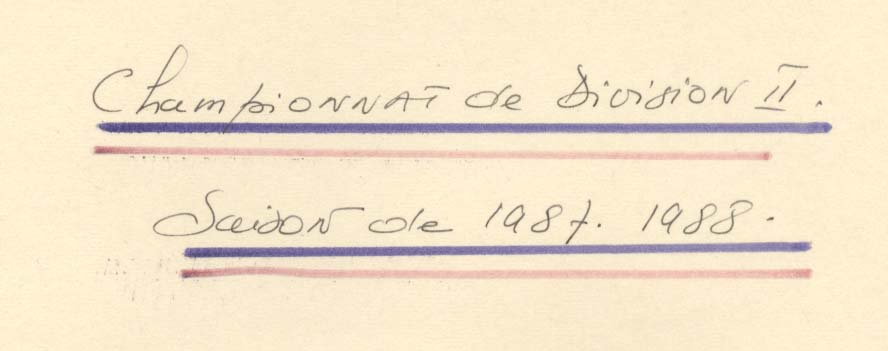 Championnat de Division II.
Saison de 1987. 1988.